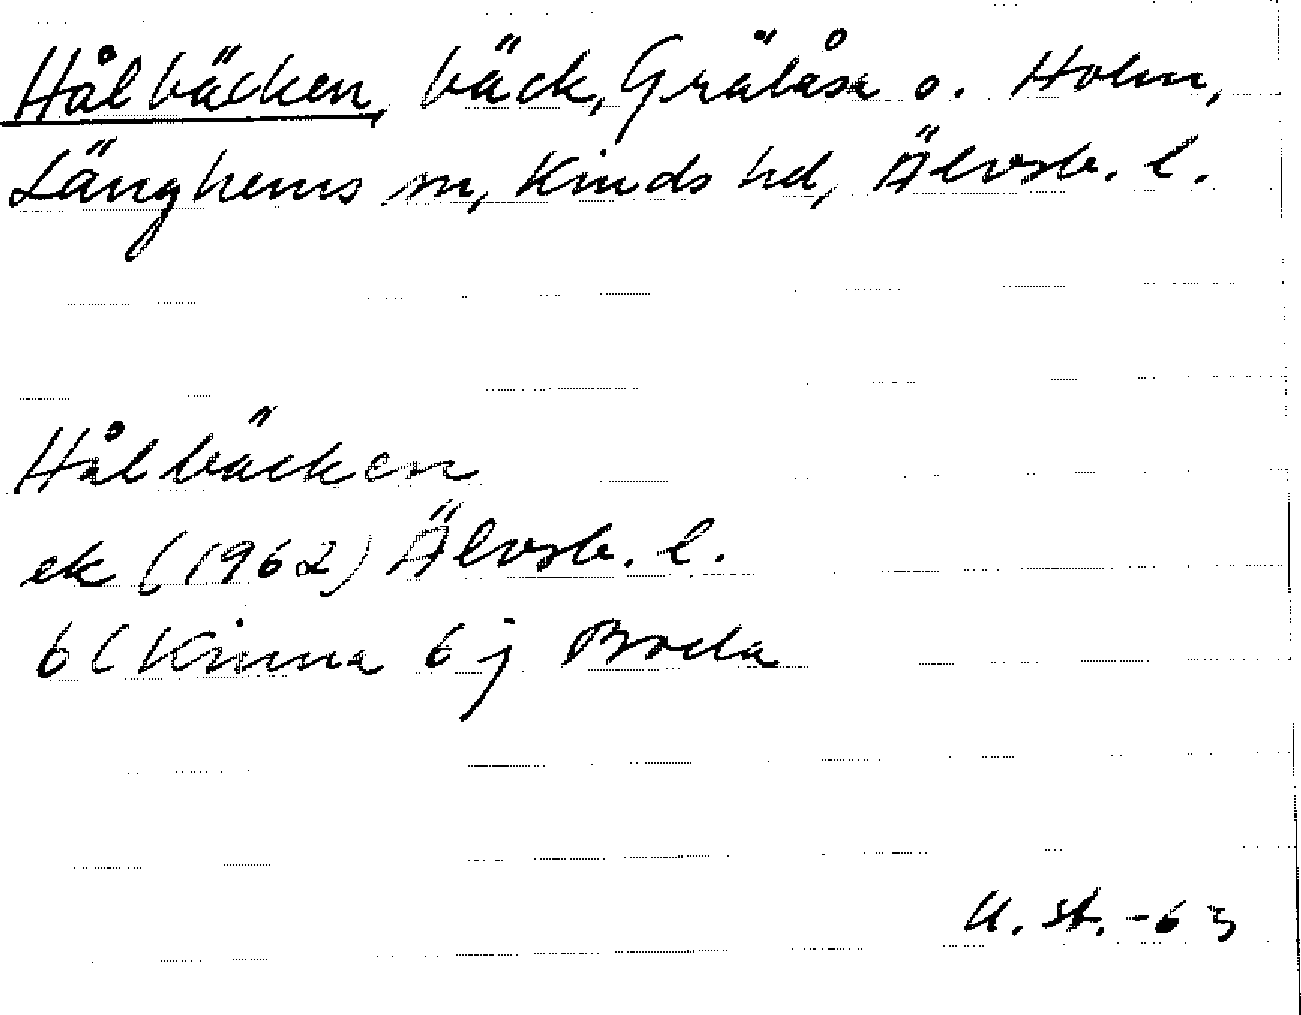 Hålbäcken, bäck, Grälåsa o. Holm,
Länghems sn, Kinds hd, Älvsb. l.
Hålbäcken
ek (1962) Älvsb. l.
6 C Kinna 6 j Broda
U. St. -63